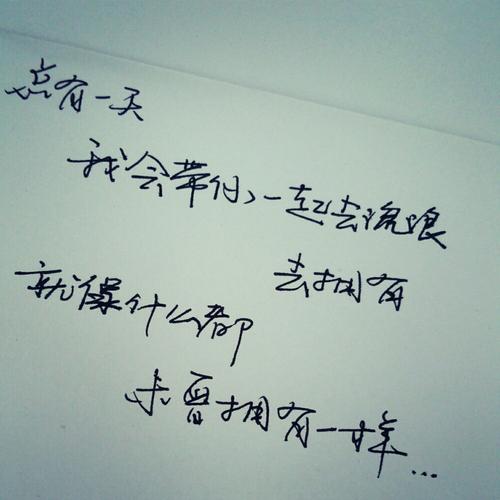 总有一天
我会带你一起去流浪
去拥有
就像什么都
未曾拥有一样...